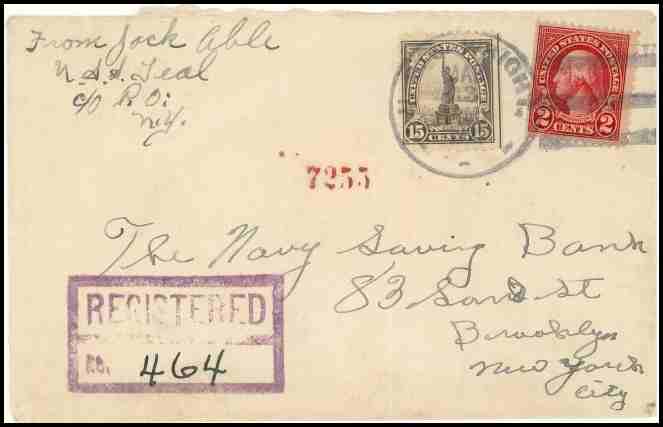 From Jack Able
U.S.S. Teal
c/o P.O.
N.Y.
UNITED STATES POSTAGE
15 15
CENTS
UNITED STATES POSTAGE
2 2
CENTS
7255
The Navy Saving Bank
83 Sands St
Brooklyn
New York
City
REGISTERED
NO. 464